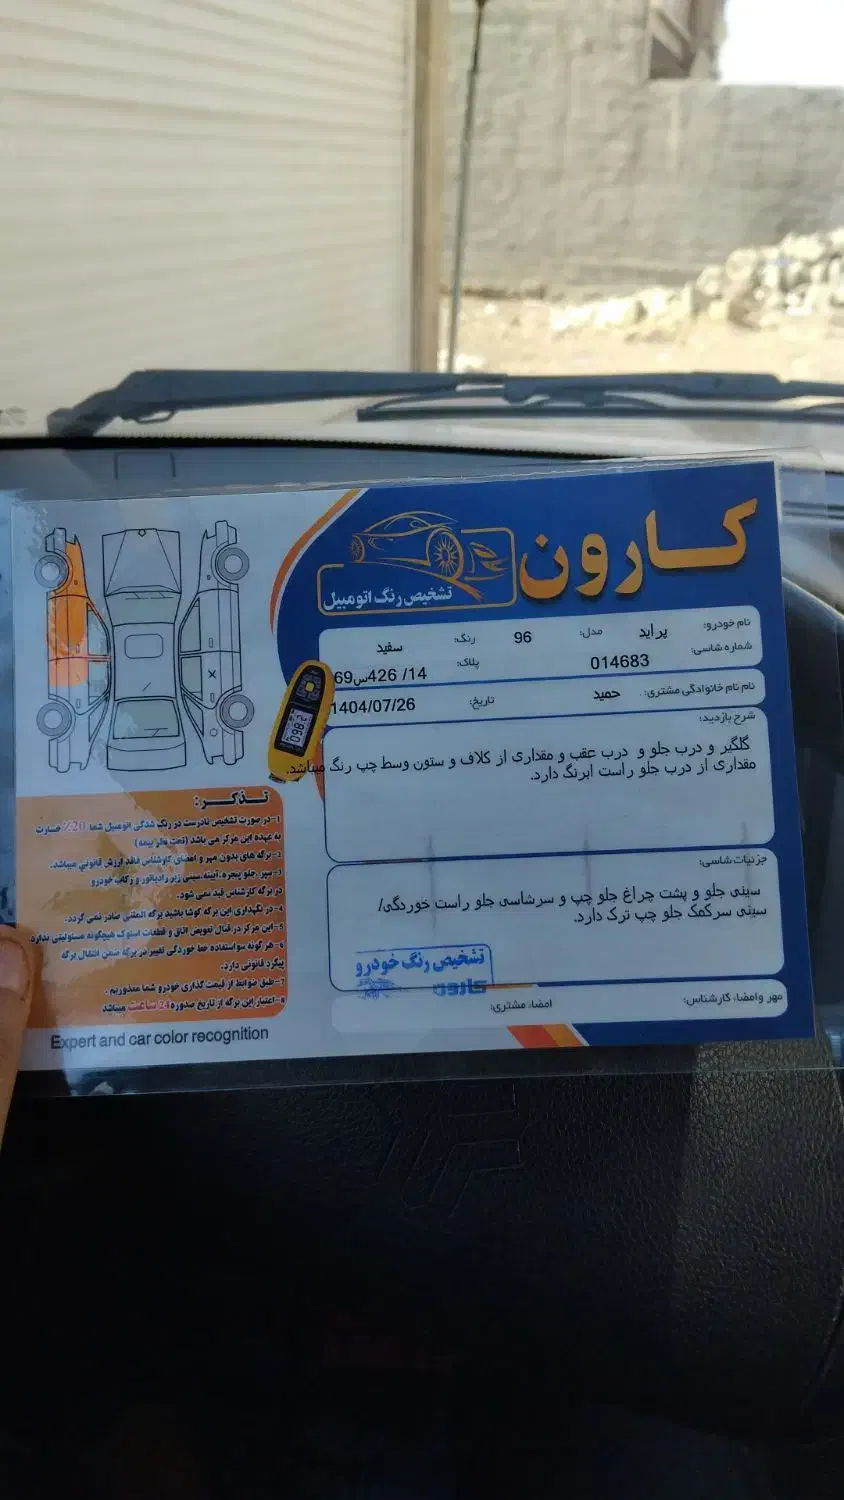 کارون
تشخیص رنگ اتومبیل
نام خودرو: پراید مدل: 96 رنگ: سفید
شماره شاسی: 014683 پلاک: 14/ 426س69
نام نام خانوادگی مشتری: حمید تاریخ: 1404/07/26
شرح بازدید:
گلگیر و درب جلو و درب عقب و مقداری از کلاف و ستون وسط چپ رنگ میباشد.
مقداری از درب جلو راست ابرنگ دارد.
جزئیات شاسی:
سینی جلو و پشت چراغ جلو چپ و سرشاسی جلو راست خوردگی/
سینی سرکمک جلو چپ ترک دارد.
تشخیص رنگ خودرو
کارون
مهر وامضاء کارشناس: امضاء مشتری:
تـذکـر:
1-در صورت تشخیص نادرست در رنگ شدگی اتومبیل شما 20٪ خسارت
به عهده این مرکز می باشد (تحت نظر بیمه)
2-برگه های بدون مهر و امضای کارشناس فاقد ارزش قانونی میباشد.
3-سپر ،جلو پنجره،آیینه،سینی زیر رادیاتور و رکاب خودرو
در برگه کارشناس قید نمی شود.
4-در نگهداری این برگه کوشا باشید برگه المثنی صادر نمی گردد.
5-این مرکز در قبال تعویض اتاق و قطعات استوک هیچگونه مسئولیتی ندارد
6-هر گونه سو استفاده خط خوردگی تغییر در برگه ضمن ابطال برگه
پیگرد قانونی دارد.
7-طبق ضوابط از قیمت گذاری خودرو شما معذوریم.
8-اعتبار این برگه از تاریخ صدور 24 ساعت میباشد
Expert and car color recognition